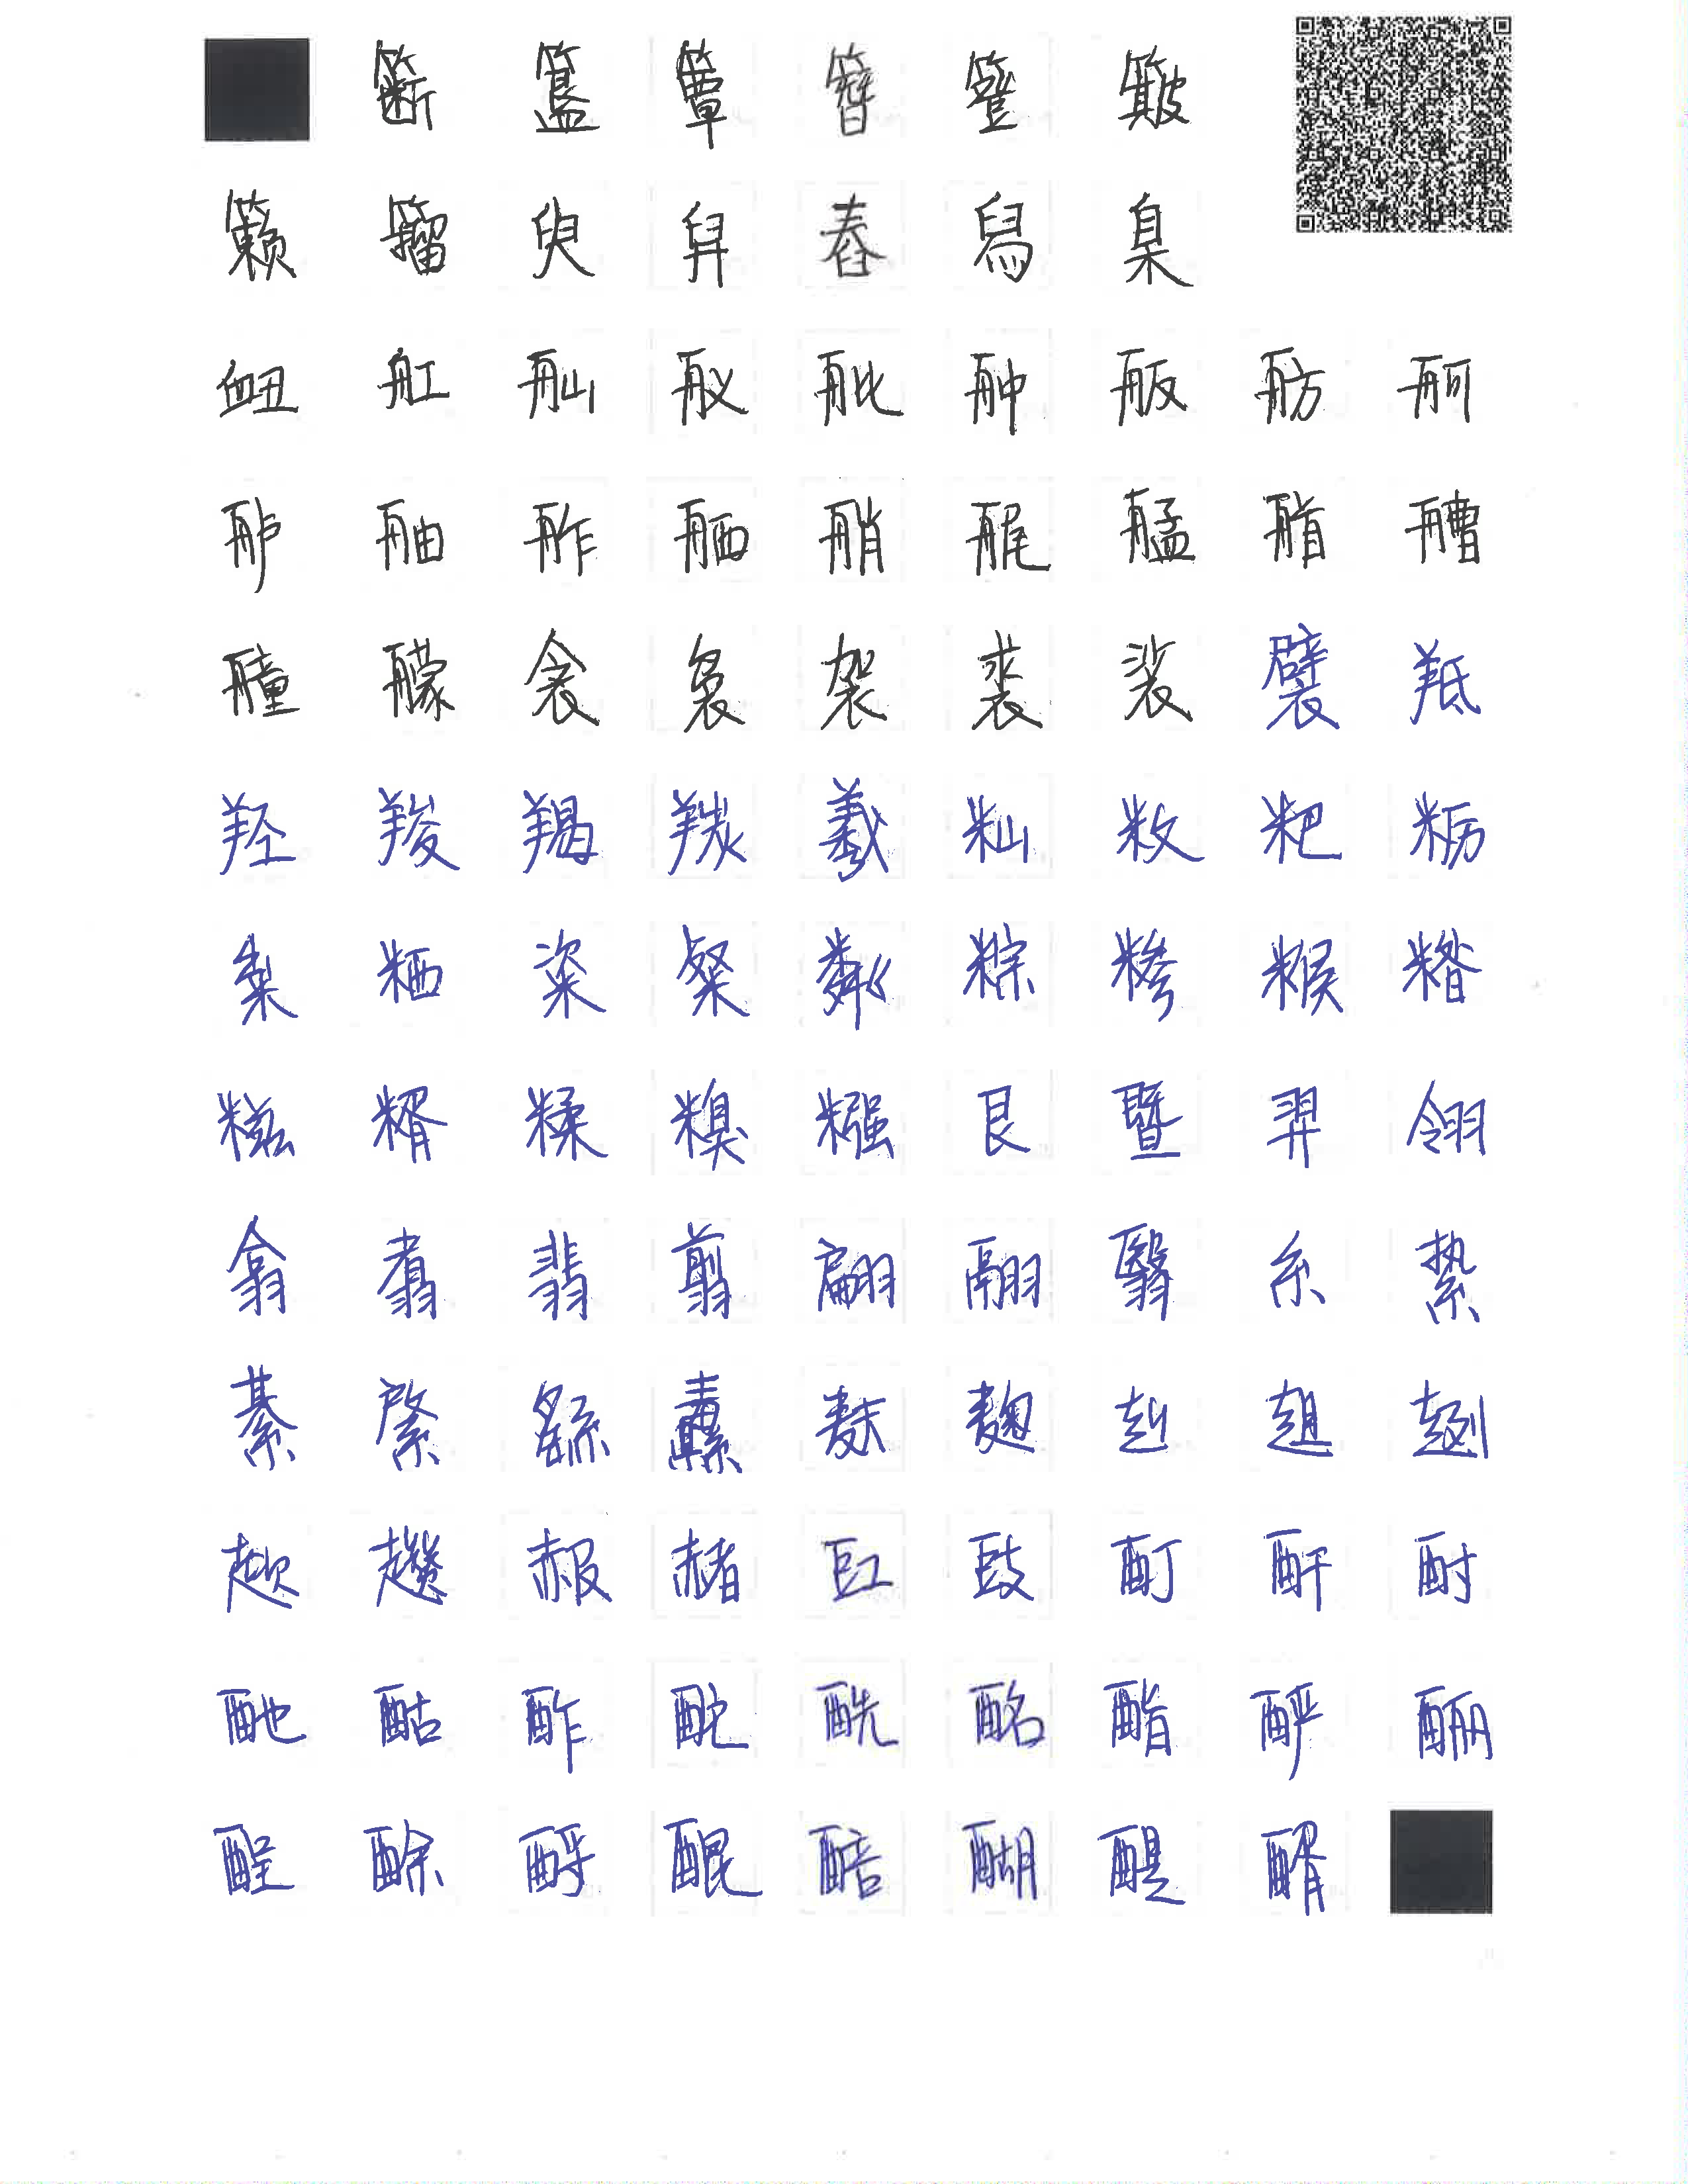 簖 簋 簟 簪 簦 簸
籁 籀 臾 舁 舂 舄 臬
衄 舡 舢 舣 舭 舯 舨 舫 舸
舻 舳 舴 舾 艄 艉 艋 艏 艚
艟 艨 衾 袅 袈 裘 裟 襞 羝
羟 羧 羯 羰 羲 籼 敉 粑 粝
粜 粞 粢 粲 粼 粽 糁 糇 糌
糍 糈 糅 糗 糨 艮 暨 羿 翎
翕 翥 翡 翦 翩 翮 翳 糸 絷
綦 綮 繇 纛 麸 麴 赳 趄 趔
趑 趱 赧 赭 豇 豉 酊 酐 酎
酏 酤 酢 酡 酰 酩 酯 酽 酾
酲 酴 酹 醌 醅 醐 醍 醑